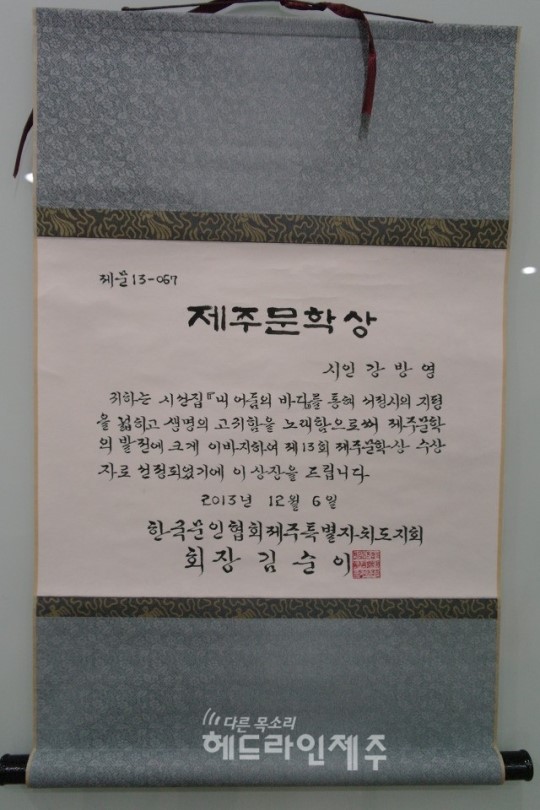 제문13-067
제주문학상
시인 강 방 영
귀하는 시선집『내 어둠의 바다』를 통해 서정시의 지평
을 넓히고 생명의 고귀함을 노래함으로써 제주문학
의 발전에 크게 이바지하여 제13회 제주문학상 수상
자로 선정되었기에 이 상장을 드립니다
2013년 12월 6일
한국문인협회제주특별자치도지회
회장 김 순 이
다른 목소리
헤드라인제주